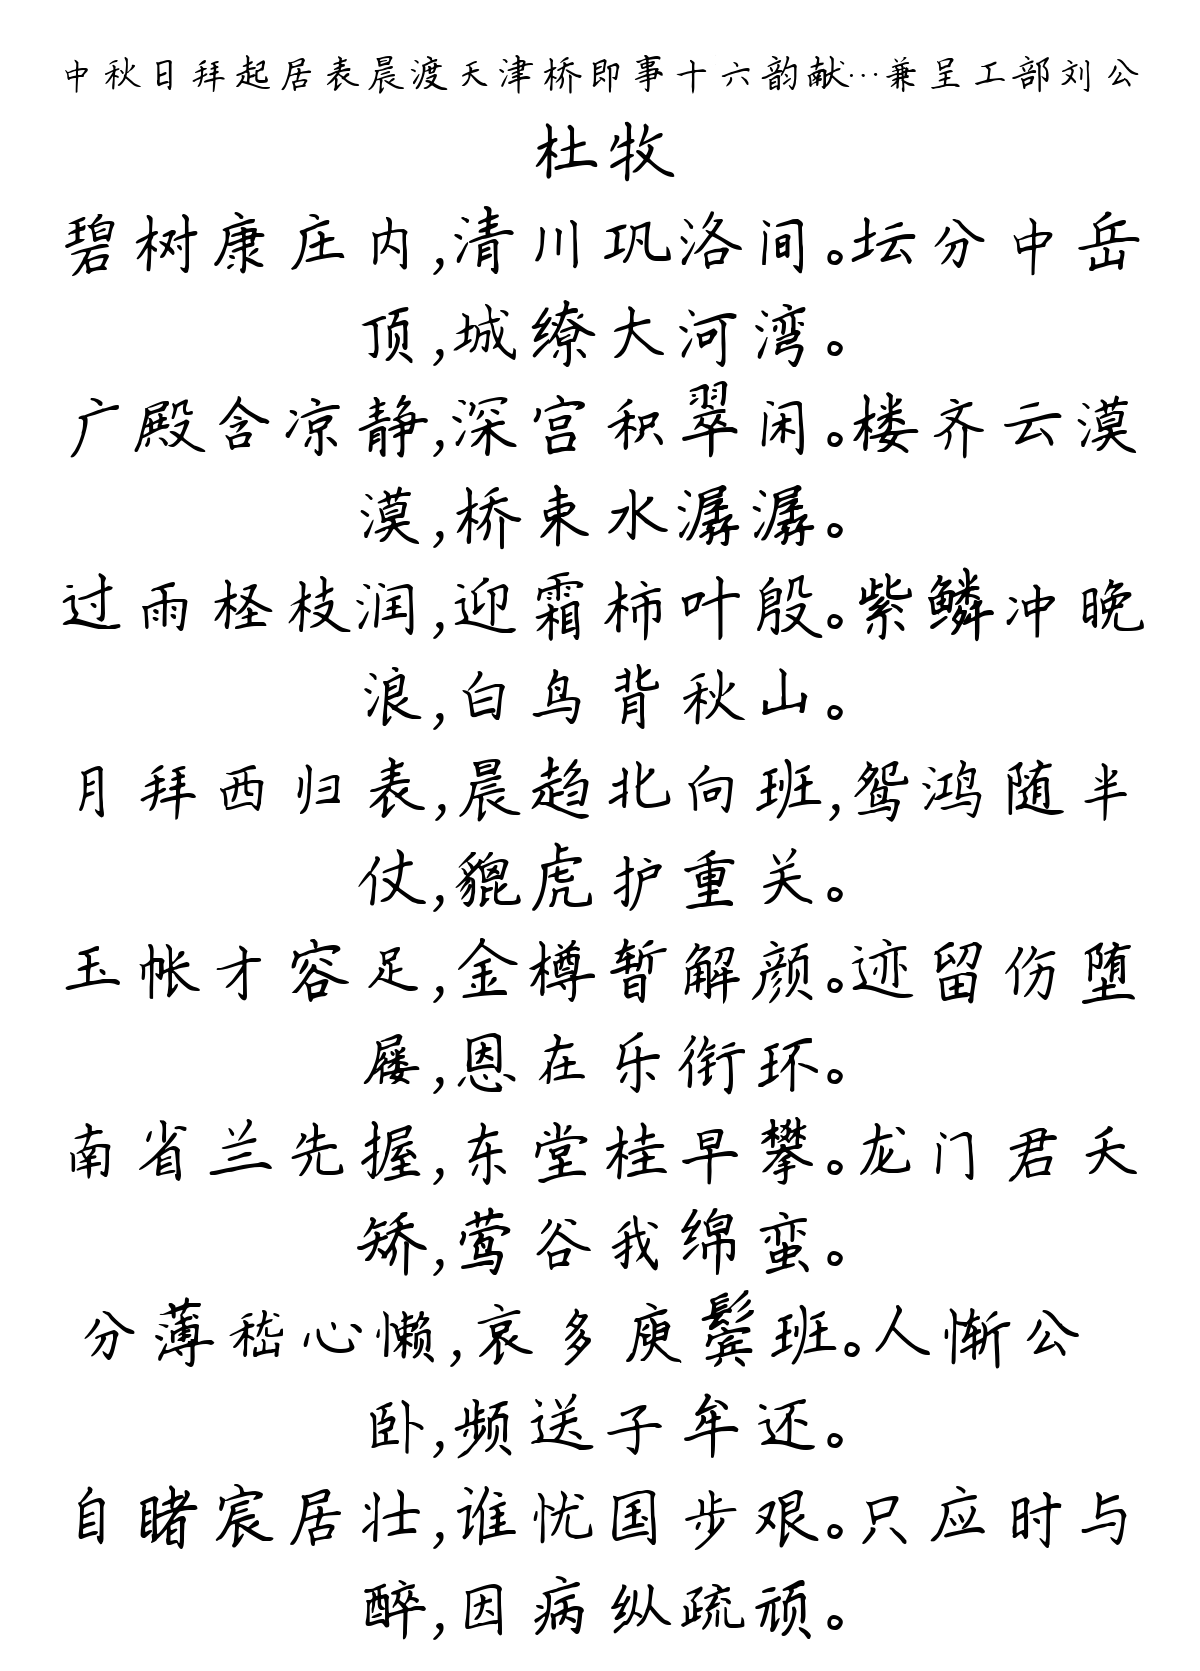 中秋日拜起居表晨渡天津桥即事十六韵献…兼呈工部刘公
杜牧
碧树康庄内,清川巩洛间。坛分中岳
顶,城缭大河湾。
广殿含凉静,深宫积翠闲。楼齐云漠
漠,桥束水潺潺。
过雨柽枝润,迎霜柿叶殷。紫鳞冲晚
浪,白鸟背秋山。
月拜西归表,晨趋北向班,鸳鸿随半
仗,貔虎护重关。
玉帐才容足,金樽暂解颜。迹留伤堕
屦,恩在乐衔环。
南省兰先握,东堂桂早攀。龙门君夭
矫,莺谷我绵蛮。
分薄嵇心懒,哀多庾鬓班。人惭公
卧,频送子牟还。
自睹宸居壮,谁忧国步艰。只应时与
醉,因病纵疏顽。